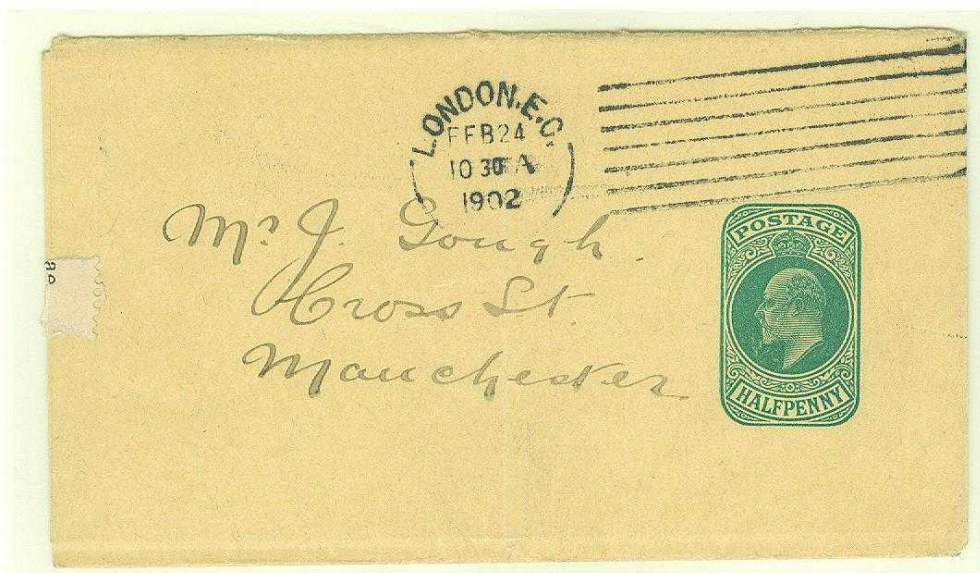 LONDON.E.C.
FEB 24
10 30 A
1902
Mr. J. Gough.
Cross St.
Manchester
POSTAGE
HALFPENNY